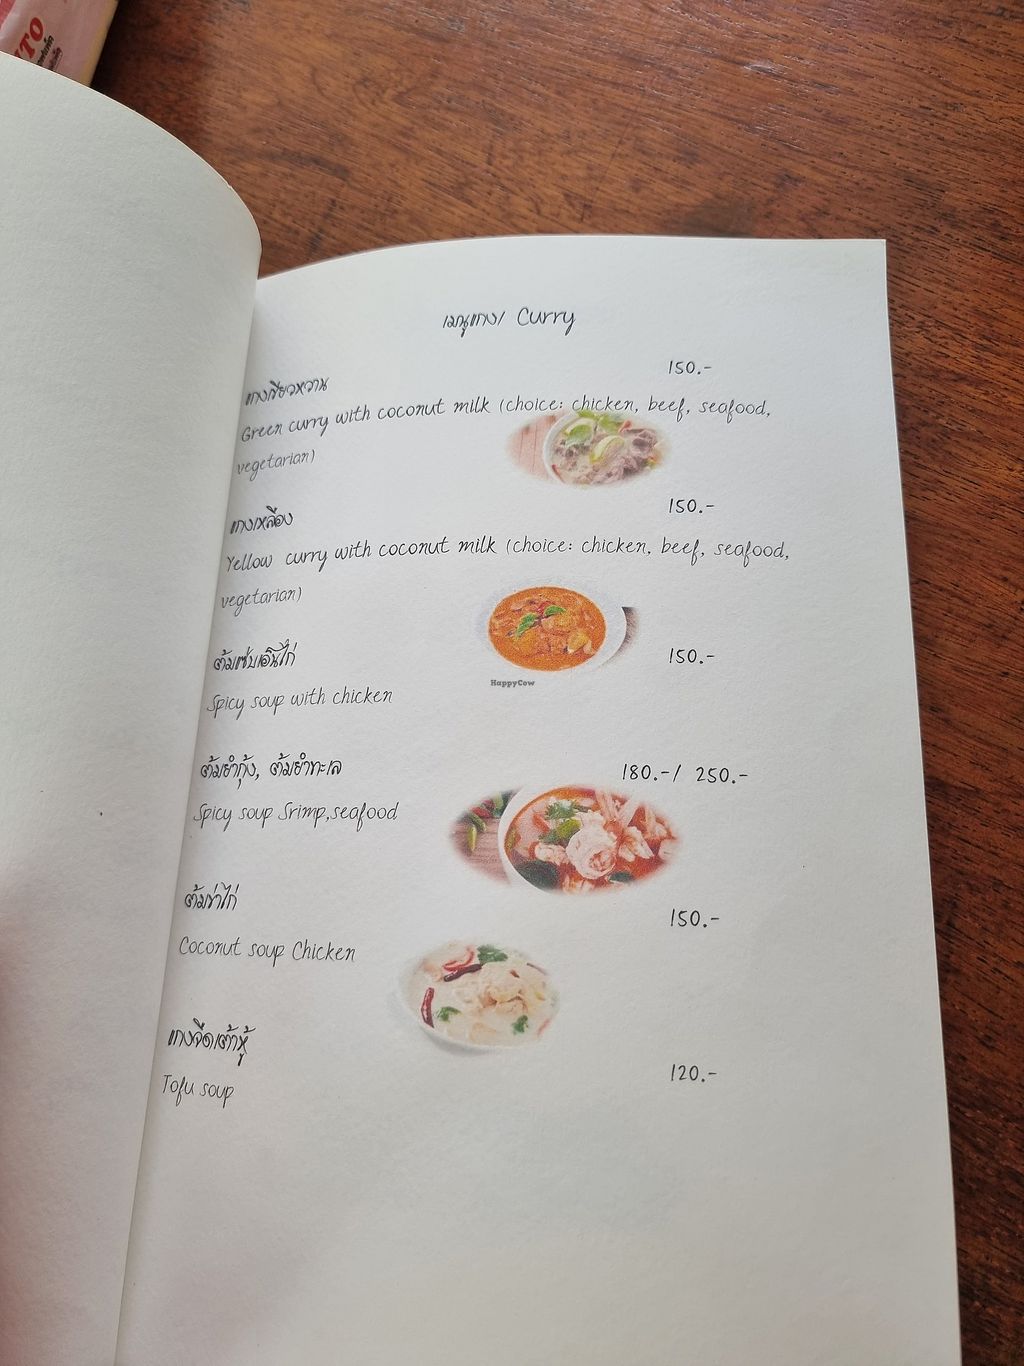 ITO
เมนูแกง/ Curry
แกงเขียวหวาน 150.-
Green curry with coconut milk (choice: chicken, beef, seafood,
vegetarian)
แกงเหลือง 150.-
Yellow curry with coconut milk (choice: chicken, beef, seafood,
vegetarian)
ต้มแซ่บเอ็นไก่ 150.-
HappyCow
Spicy soup with chicken
ต้มยำกุ้ง, ต้มยำทะเล 180.-/ 250.-
Spicy soup Srimp,seafood
ต้มข่าไก่ 150.-
Coconut soup Chicken
แกงจืดเต้าหู้ 120.-
Tofu soup